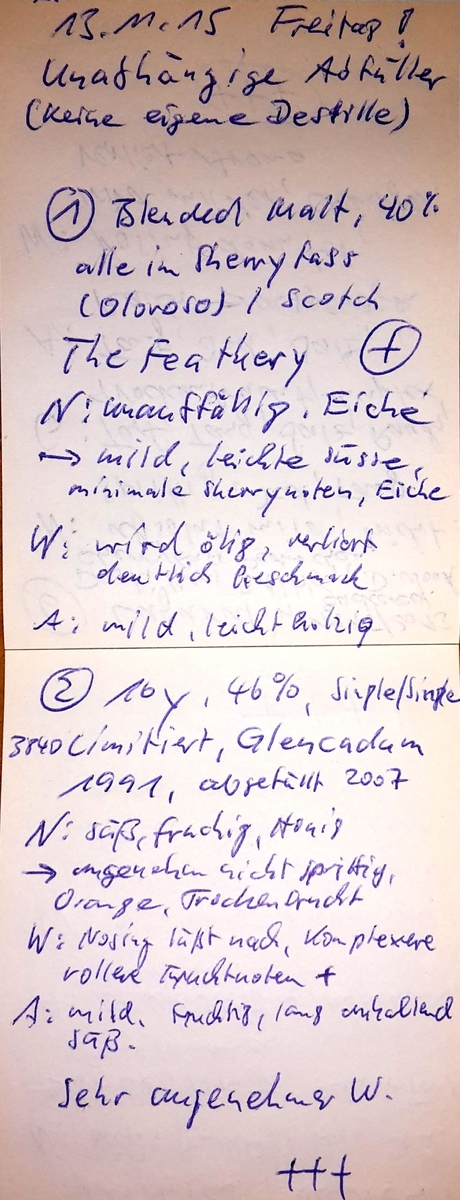 13.11.15 Freitag!
Unabhängige Abfüller
(keine eigene Destille)
① Blended Malt, 40%
alle im Sherryfass
(Oloroso) / Scotch
The Feathery (+)
N: unauffällig. Eiche
→ mild, leichte süsse,
minimale Sherrynoten, Eiche
W: wird ölig, verliert
deutlich Geschmack
A: mild, leicht holzig
② 16y, 46%, Single/Single
3840 Limitiert, Glencadam
1991, abgefüllt 2007
N: süß, fruchig, Honig
→ angenehm nicht sprittig,
Orange, Trockenfrucht
W: Nosing läßt nach, Komplexere
vollere Fruchtnoten +
A: mild. Fruchtig, lang anhaltend
süß.
Sehr angenehmer W.
+++